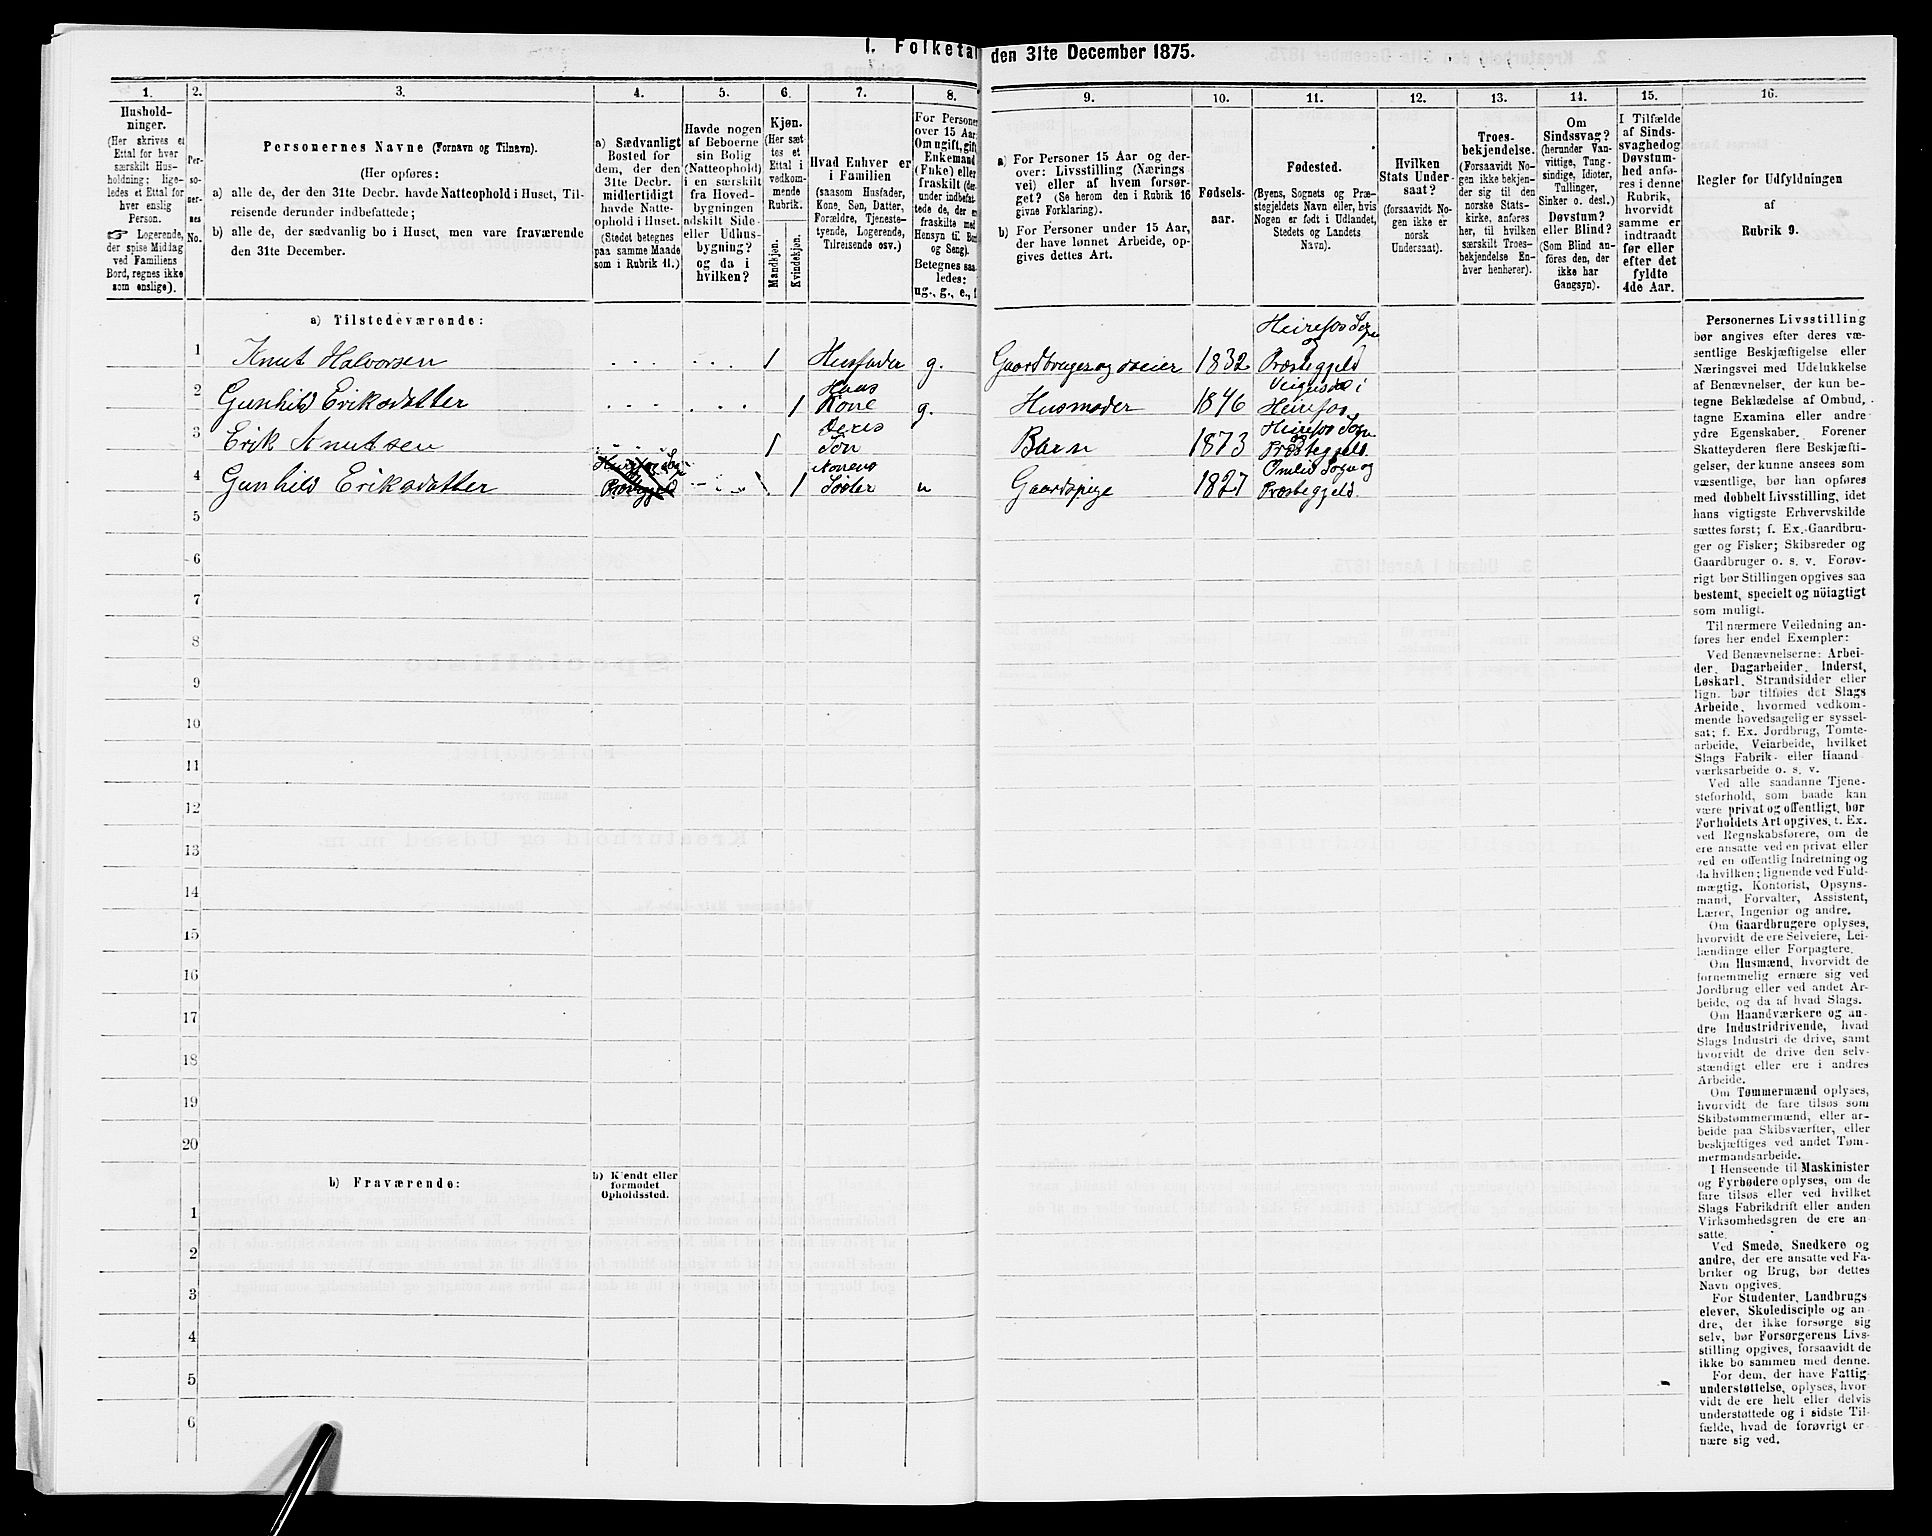 1. Folketal den 31te December 1875.
1. 2. 3. 4. 5. 6. 7. 8. 9. 10. 11. 12. 13. 14. 15. 16.
Hushold-
ninger.
(Her skrives et
Ettal for hver
særskilt Hus-
holdning; lige-
ledes et Ettal for
hver enslig
Person.
☞ Logerende,
der spise Middag
ved Familiens
Bord, regnes ikke
som enslige).
Per-
so-
ner-
nes
No.
Personernes Navne (Fornavn og Tilnavn).
(Her opføres:
a) alle de, der den 31te Decbr. havde Natteophold i Huset, Til-
reisende derunder indbefattede;
b) alle de, der sædvanlig bo i Huset, men vare fraværende
den 31te December.
a) Sædvanligt
Bosted for
dem, der den
31te Decbr.
midlertidigt
havde Natte-
ophold i Huset.
(Stedet betegnes
paa samme Maade
som i Rubrik 11.)
Havde nogen
af Beboerne
sin Bolig
(Natteophold)
i en særskilt
fra Hoved-
bygningen
adskilt Side-
eller Udhus-
bygning?
og da i
hvilken?
Kjøn.
(Her sæt-
tes et
Ettal i
vedkom-
mende
Rubrik.
Mandkjøn.
Kvindekjøn.
Hvad Enhver er
i Familien
(saasom Husfader,
Kone, Søn, Datter,
Forældre, Tjeneste-
tyende, Logerende,
Tilreisende osv.)
For Personer
over 15 Aar:
Om ugift, gift,
Enkemand
(Enke) eller
fraskilt (der-
under indbefat-
tede de, der er
fraskilte med
Hensyn til Bord
og Seng).
Betegnes saa-
ledes:
ug., g., e., f.
a) For Personer 15 Aar og der-
over: Livsstilling (Nærings-
vei) eller af hvem forsør-
get? (Se herom den i Rubrik 16
givne Forklaring).
b) For Personer under 15 Aar,
der have lønnet Arbeide, op-
gives dettes Art.
Fødsels-
aar.
Fødested.
(Byens, Sognets og Præ-
stegjeldets Navn eller, hvis
Nogen er født i Udlandet,
Stedets og Landets
Navn).
Hvilken
Stats Under-
saat?
(forsaavidt No-
gen ikke er
norsk
Undersaat).
Troes-
bekjendelse.
(Forsaavidt No-
gen ikke bekjen-
der sig til den
norske Stats-
kirke, anføres
her, til hvilken
særskilt Troes-
bekjendelse En-
hver henhører).
Om
Sindssvag?
(herunder Van-
vittige, Tung-
sindige, Idioter,
Tullinger,
Sinker o. desl.)
Døvstum?
eller Blind?
(Som Blind an-
føres den, der
ikke har
Gangsyn).
I Tilfælde
af Sinds-
svaghed og
Døvstum-
hed anfø-
res i denne
Rubrik,
hvorvidt
samme er
indtraadt
før eller
efter det
fyldte
4de Aar.
Regler for Udfyldningen
af
Rubrik 9.
a) Tilstedeværende:
1 Knut Halvorsen 1 Husfader g. Gaardbruger og Søeier 1832 Heirefos Sogn
og
Præstegjeld
2 Gunhild Eriksdatter 1 Hans
Kone g. Husmoder 1846 Heirefos
3 Erik Knutsen 1 Deres
Søn Barn 1873 Heirefos Sogn
og
Præstegjeld
4 Gunhild Eriksdatter 1 Konens
Søster u Gaardspige 1827 Omlid Sogn og
Præstegjeld
5
6
7
8
9
10
11
12
13
14
15
16
17
18
19
20
b) Fraværende:
b) Kjendt eller
formodet
Opholdssted.
1
2
3
4
5
6
Personernes Livsstilling
bør angives efter deres væ-
sentlige Beskjæftigelse eller
Næringsvei med Udelukkelse
af Benævnelser, der kun be-
tegne Beklædelse af Ombud,
tagne Examina eller andre
ydre Egenskaber. Forener
Skatteyderen flere Beskjæfti-
gelser, der kunne ansees som
væsentlige, bør han opføres
med dobbelt Livsstilling, idet
hans vigtigste Erhvervskilde
sættes først; f. Ex. Gaardbru-
ger og Fisker; Skibsreder og
Gaardbruger o. s. v. Forøv-
rigt bør Stillingen opgives saa
bestemt, specielt og nöiagtigt
som muligt.
Til nærmere Veiledning an-
føres her endel Exempler:
Ved Benævnelserne: Arbei-
der, Dagarbeider, Inderst,
Løskarl, Strandsidder eller
lign. bør tilføies det Slags
Arbeide, hvormed vedkom-
mende hovedsagelig er syssel-
sat; f. Ex. Jordbrug, Tomte-
arbeide, Veiarbeide, hvilket
Slags Fabrik- eller Haand-
værksarbeide o. s. v.
Ved alle saadanne Tjene-
steforhold, som baade kan
være privat og offentligt, bør
Forholdets Art opgives, t. Ex.
ved Regnskabsførere, om de
ere ansatte ved en privat eller
ved en offentlig Indretning og
da hvilken; lignende ved Fuld-
mægtig, Kontorist, Opsyns-
mand, Forvalter, Assistent,
Lærer, Ingeniør og andre.
Om Gaardbrugere oplyses,
hvorvidt de ere Selveiere, Lei-
lændinge eller Forpagtere.
Om Husmænd, hvorvidt de
fornemmelig ernære sig ved
Jordbrug eller ved andet Ar-
beide, og da af hvad Slags.
Om Haandværkere og an-
dre Industridrivende, hvad
Slags Industri de drive, samt
hvorvidt de drive den selv-
stændigt eller ere i andres
Arbeide.
Om Tømmermænd oplyses,
hvorvidt de fare tilsøs som
Skibstømmermænd, eller ar-
beide paa Skibsværfter, eller
beskjæftiges ved andet Tøm-
mermandsarbeide.
I Henseende til Maskinister
og Fyrbødere oplyses, om de
fare tilsøs eller ved hvilket
Slags Fabrikdrift eller anden
Virksomhedsgren de ere an-
satte.
Ved Smede, Snedkere og
andre, der ere ansatte ved Fa-
briker og Brug, bør dettes
Navn opgives.
For Studenter, Landbrugs-
elever, Skoledisciple og an-
dre, der ikke forsørge sig
selv, bør Forsørgerens Livs-
stilling opgives, forsaavidt de
ikke bo sammen med denne.
For dem, der have Fattig-
understøttelse, oplyses, hvor-
vidt de ere helt eller delvis
understøttede og i sidste Til-
fælde, hvad de forøvrigt er-
nære sig ved.